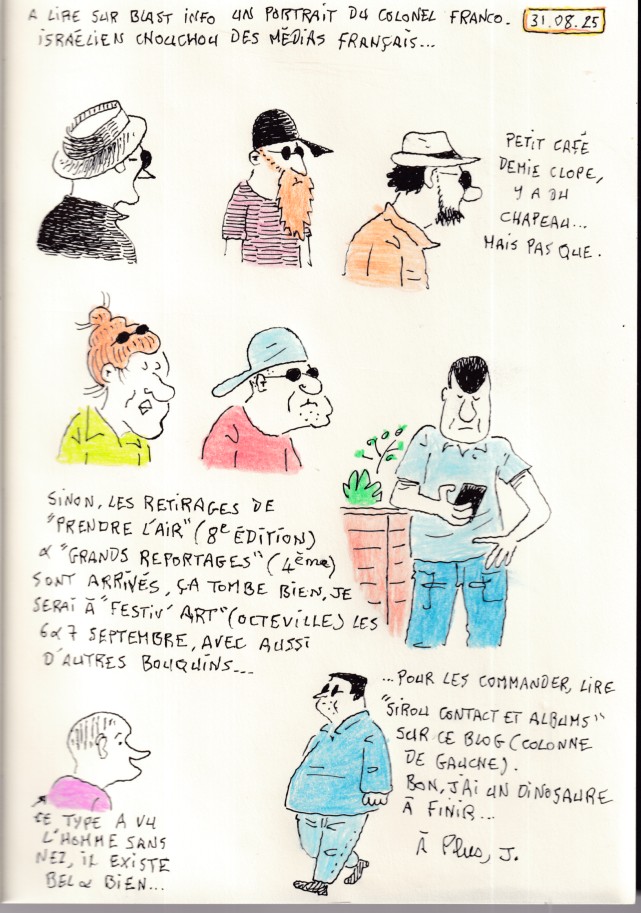 A LIRE SUR BLAST INFO UN PORTRAIT DU COLONEL FRANCO.
ISRAÉLIEN CHOUCHOU DES MÉDIAS FRANÇAIS...
31.08.25
PETIT CAFÉ
DEMIE CLOPE,
Y A DU
CHAPEAU...
MAIS PAS QUE.
SINON, LES RETIRAGES DE
"PRENDRE L'AIR" (8e ÉDITION)
& "GRANDS REPORTAGES" (4ème)
SONT ARRIVÉS, ÇA TOMBE BIEN, JE
SERAI À "FESTIV' ART" (OCTEVILLE) LES
6 & 7 SEPTEMBRE, AVEC AUSSI
D'AUTRES BOUQUINS...
...POUR LES COMMANDER, LIRE
"SIROU CONTACT ET ALBUMS"
SUR CE BLOG (COLONNE
DE GAUCHE).
BON, J'AI UN DINOSAURE
À FINIR...
À Plus, J.
CE TYPE A VU
L'HOMME SANS
NEZ, IL EXISTE
BEL & BIEN...